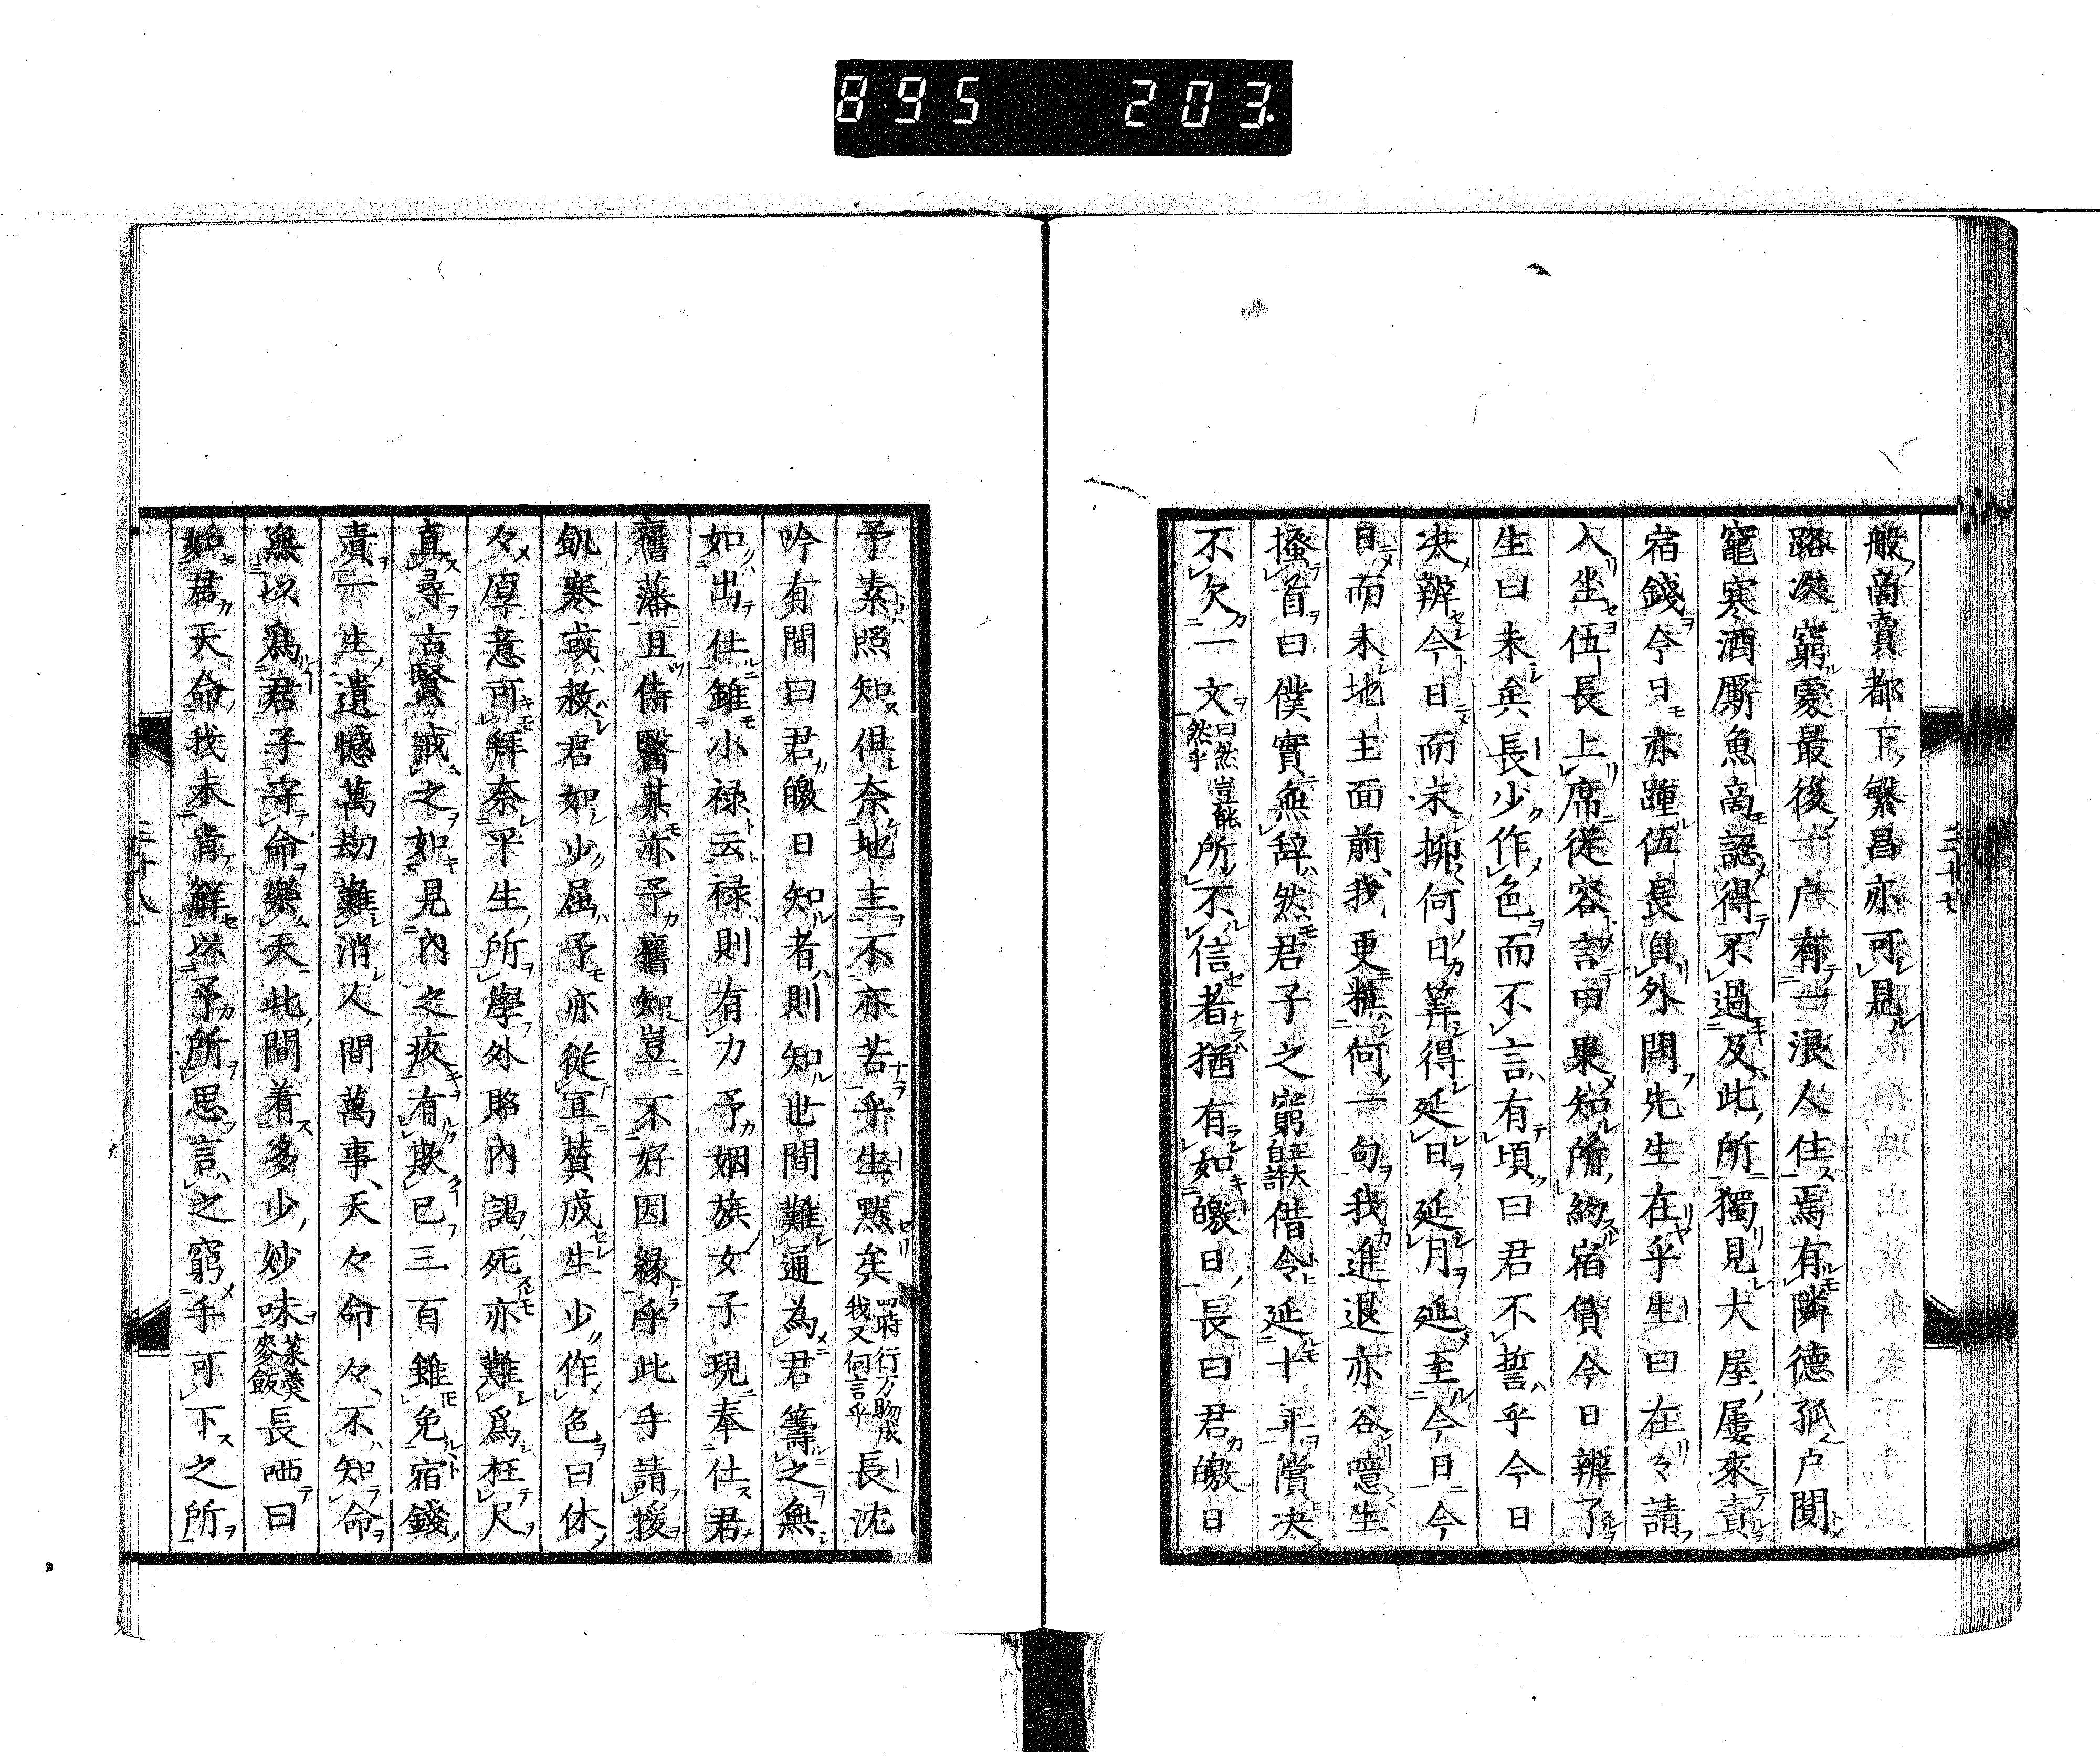 895 203
般商賣都下繁昌亦可見
路次窮處最後一戶有一浪人住焉有隣德孤戶閴
竈寒酒厮魚商認得不過及此所獨見大屋屢來責
宿錢今日亦踵伍長自外問先生在乎生曰在々請
入坐伍長上席從容言曰果知所約宿賃今日辨了
生曰未矣長少作色而不言有頃曰君不誓乎今日
决辨今日而未抑何日筭得延日延月延至今日今
日而未地主面前我更粧何一句我進退亦谷噫生
搔首曰僕實無辞然君子之窮正大自許借令延十年償决
不欠一文曰然豈能然乎所不信者猶有如皦日長曰君皦日
三十七
予素照知俱奈地主不亦苦乎生默矣四時行万物成我又何言乎長沈
吟有間曰君皦日知者則知世間難通為君籌之無
如出仕雖小禄云禄則有力予姻族女子現奉仕君
舊藩且侍醫某亦予舊知豈不好因縁乎此手請援
飢寒或救君如少屈予亦從耳賛成生少作色曰休
々厚意可拜奈平生所學外賂內謁死亦難爲枉尺
直尋古賢戒之如見內之疚有欺已三百雖免宿錢
責一生遺憾萬劫難消人間萬事天々命々不知命
無以爲君子守命樂天此間着多少妙味菜羹麥飯長哂曰
如君天命我未肯解以予所思言之窮手可下之所
三十八